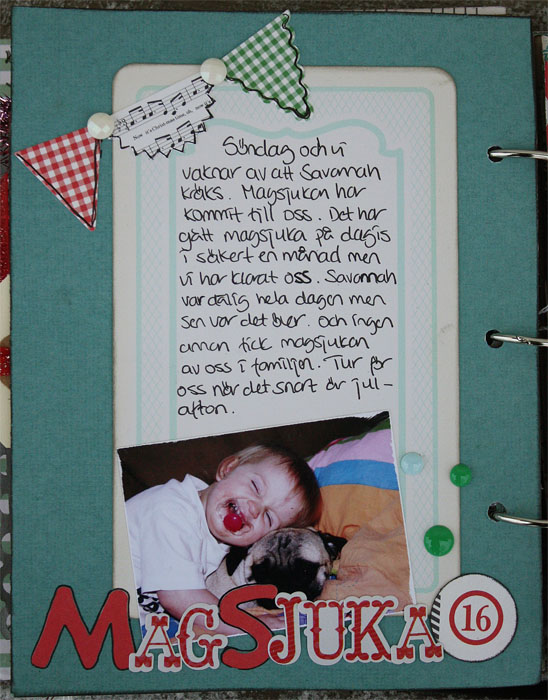 Now it's Christmas time, oh, now
Söndag och vi
vaknar av att Savannah
kräks. Magsjukan har
kommit till oss. Det har
gått magsjuka på dagis
i säkert en månad men
vi har klarat oss. Savannah
var dålig hela dagen men
sen var det över. Och ingen
annan fick magsjukan
av oss i familjen. Tur för
oss när det snart är jul-
afton.
MAGSJUKA 16